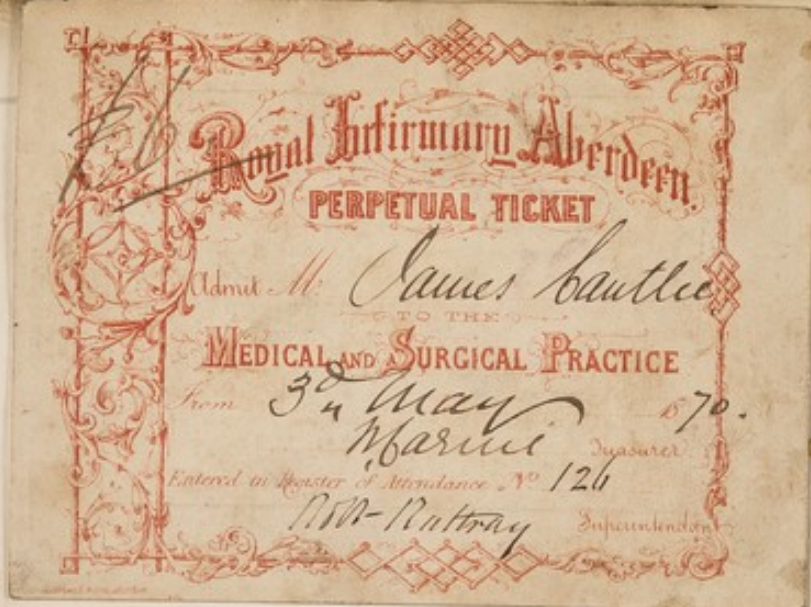 £6
Royal Infirmary Aberdeen.
PERPETUAL TICKET
Admit Mr. James Cantlie
TO THE
MEDICAL AND SURGICAL PRACTICE
From 3d May 1870.
Treasurer
Entered in Register of Attendance No 126
Robt Rattray Superintendent